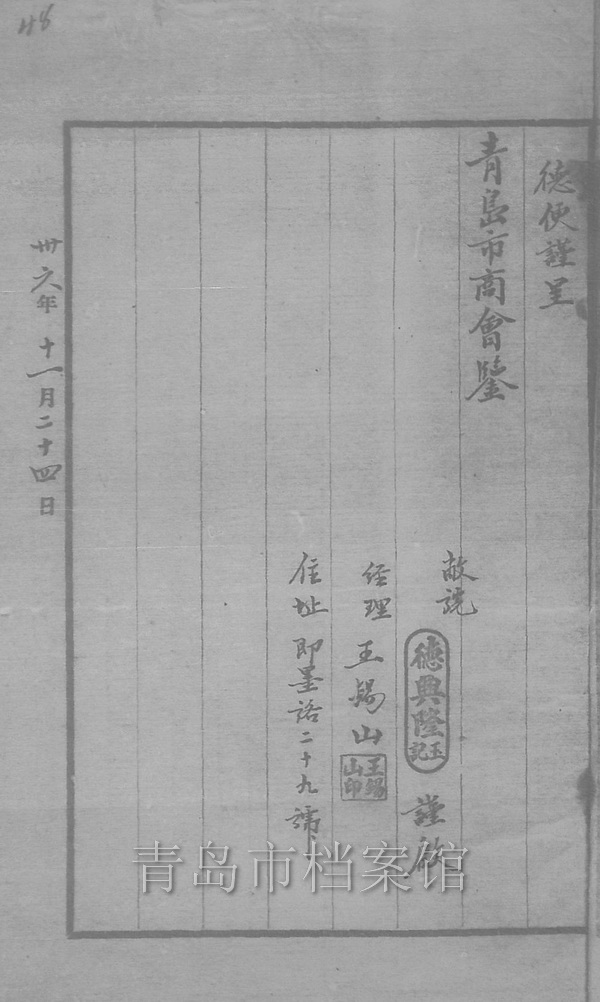 德便謹呈
青島市商會鑒
敝號
德興隆
玉記
謹啟
經理 王錫山
王錫
山印
住址 即墨路二十九號
卅六年十一月二十四日
48
青岛市档案馆